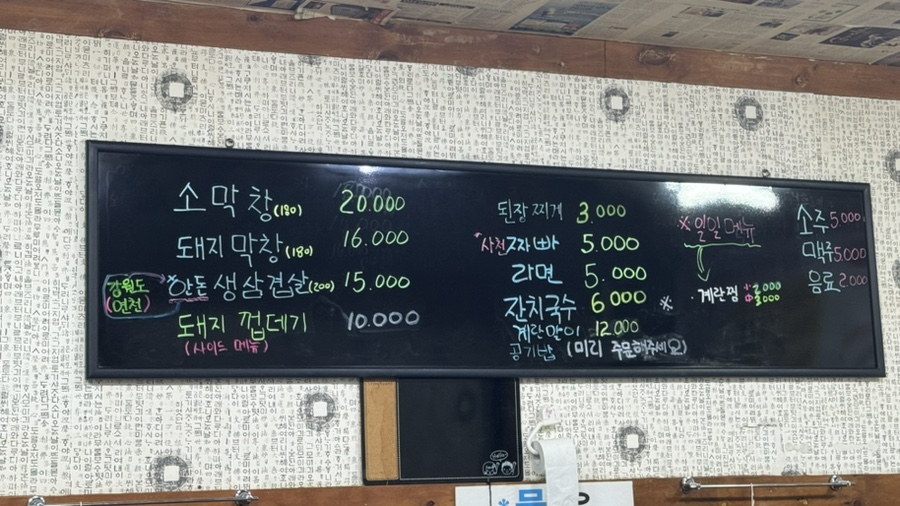 소막창(180) 20.000
돼지막창(180) 16.000
강원도
(연천)
*한돈 생삼겹살(200) 15.000
돼지 껍데기 10.000
(사이드 메뉴)
된장찌게 3.000
*사천짜빠 5.000
라면 5.000
잔치국수 6.000
계란말이 12.000
공기밥 (미리 주문해주세요)
※
※일일메뉴
·계란찜 小 2,000
中 3,000
소주 5.000
맥주 5.000
음료 2.000